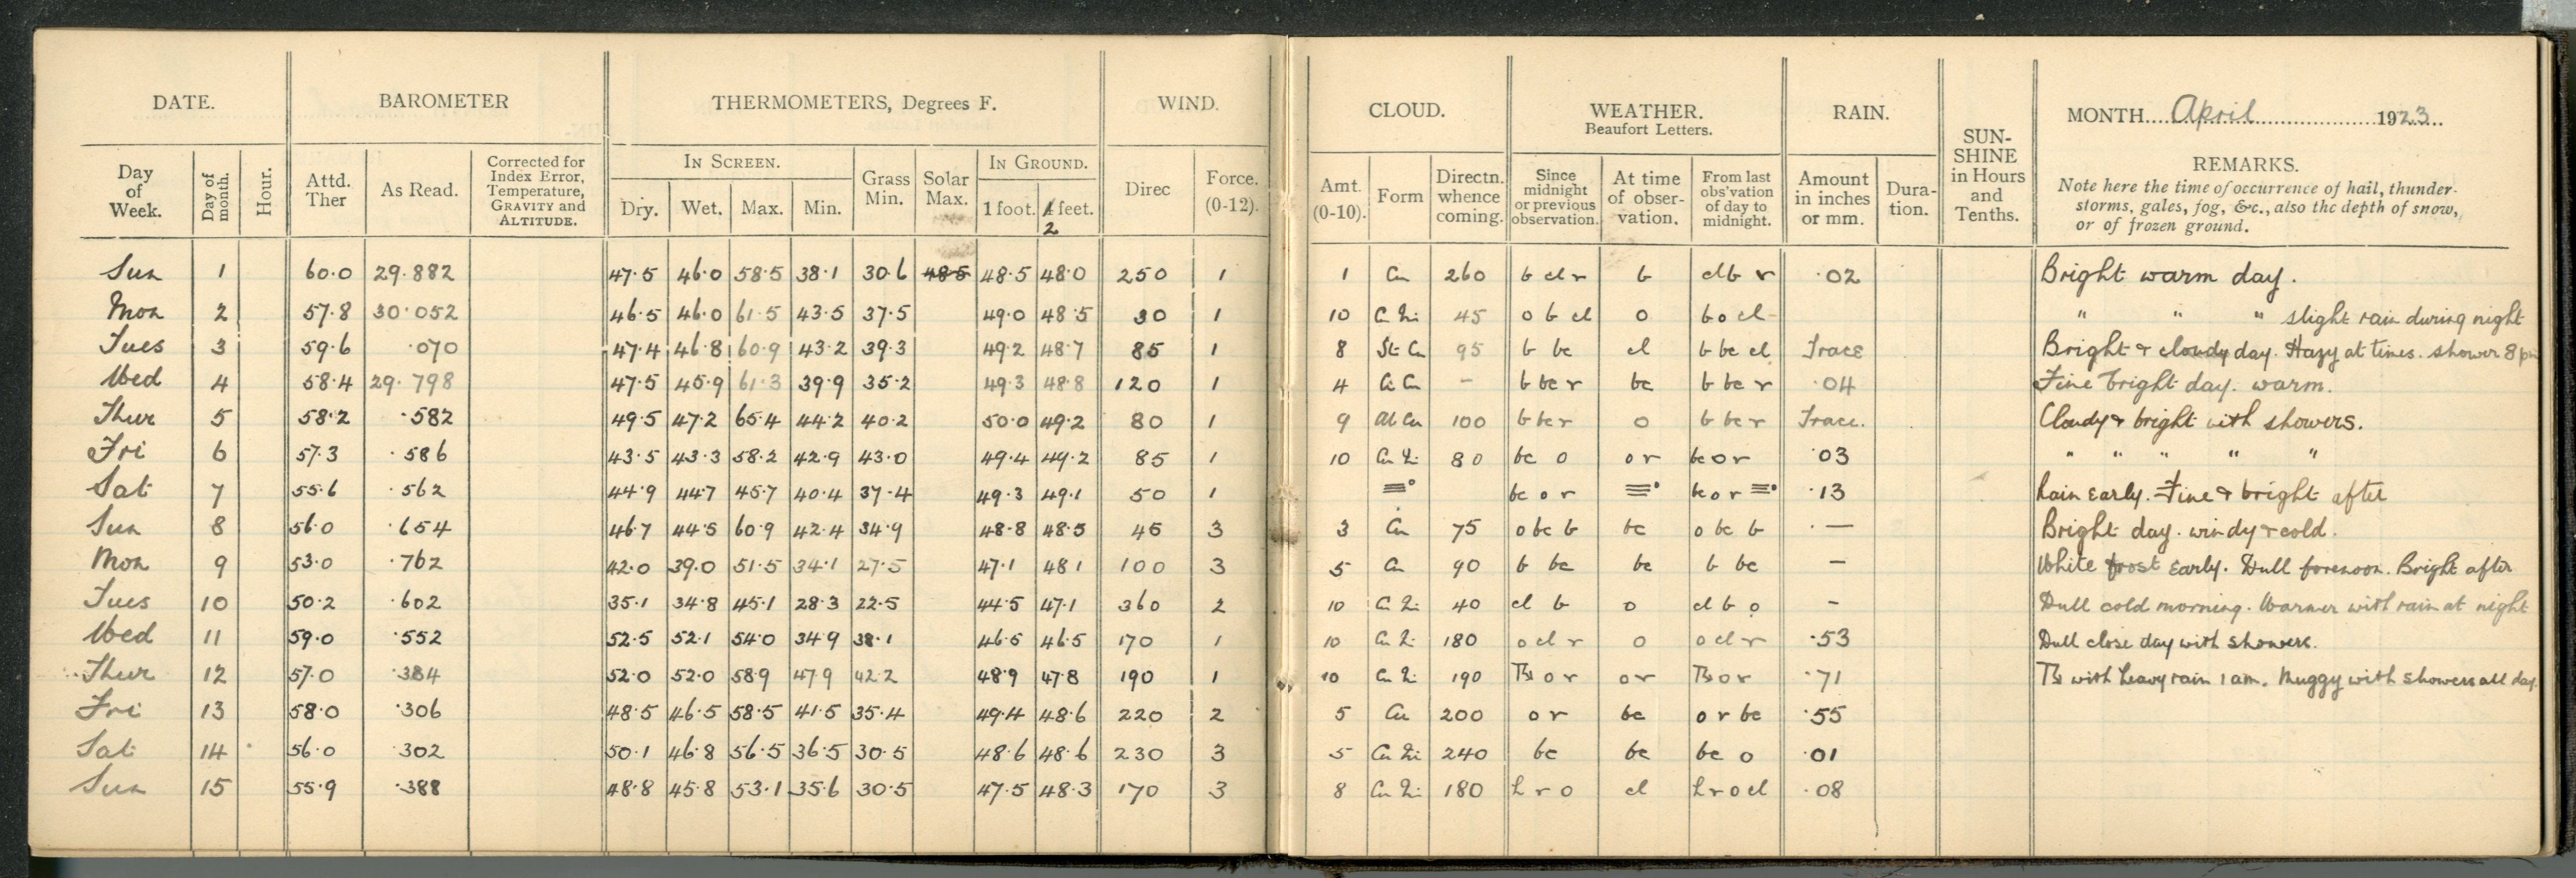 DATE. BAROMETER THERMOMETERS, Degrees F. WIND. CLOUD. WEATHER. Beaufort Letters. RAIN. SUN-SHINE in Hours and Tenths. MONTH April 1923
Day of Week. Day of month. Hour. Attd. Ther As Read. Corrected for Index Error, Temperature, GRAVITY and ALTITUDE. IN SCREEN. Dry. Wet. Max. Min. Grass Min. Solar Max. IN GROUND. 1 foot. 4 feet. 2 Direc Force. (0-12). Amt. (0-10). Form Directn. whence coming. Since midnight or previous observation. At time of obser-vation. From last obs'vation of day to midnight. Amount in inches or mm. Dura-tion. REMARKS.
Note here the time of occurrence of hail, thunder-
storms, gales, fog, &c., also the depth of snow,
or of frozen ground.
Sun 1 60.0 29.882 47.5 46.0 58.5 38.1 30.6 48.5 48.5 48.0 250 1 1 Cu 260 b cl r b cl b r .02 Bright warm day.
Mon 2 57.8 30.052 46.5 46.0 61.5 43.5 37.5 49.0 48.5 30 1 10 Cu Ni 45 o b cl o b o cl - " " " slight rain during night
Tues 3 59.6 .070 47.4 46.8 60.9 43.2 39.3 49.2 48.7 85 1 8 St Cu 95 b bc cl b bc cl Trace Bright & cloudy day. Hazy at times. shower 8 pm
Wed 4 58.4 29.798 47.5 45.9 61.3 39.9 35.2 49.3 48.8 120 1 4 Ci Cu - b bc r bc b bc r .04 Fine bright day. warm.
Thur 5 58.2 .582 49.5 47.2 65.4 44.2 40.2 50.0 49.2 80 1 9 Al Cu 100 b bc r o b bc r Trace. Cloudy & bright with showers.
Fri 6 57.3 .586 43.5 43.3 58.2 42.9 43.0 49.4 49.2 85 1 10 Cu Ni 80 bc o o r bc o r .03 " " " " "
Sat 7 55.6 .562 44.9 44.7 45.7 40.4 37.4 49.3 49.1 50 1 ≡° bc o r ≡° bc o r ≡° .13 Rain Early. Fine & bright after
Sun 8 56.0 .654 46.7 44.5 60.9 42.4 34.9 48.8 48.5 45 3 3 Cu 75 o bc b bc o bc b . — Bright day. windy & cold.
Mon 9 53.0 .762 42.0 39.0 51.5 34.1 27.5 47.1 48.1 100 3 5 Cu 90 b bc bc b bc — White frost Early. Dull forenoon. Bright after
Tues 10 50.2 .602 35.1 34.8 45.1 28.3 22.5 44.5 47.1 360 2 10 Cu Ni 40 cl b o cl b o - Dull cold morning. Warmer with rain at night
Wed 11 59.0 .552 52.5 52.1 54.0 34.9 38.1 46.5 46.5 170 1 10 Cu Ni 180 o cl r o o cl r .53 Dull close day with showers.
Thur 12 57.0 .384 52.0 52.0 58.9 47.9 42.2 48.9 47.8 190 1 10 Cu Ni 190 Ths o r o r Ths o r .71 Ths with heavy rain 1 am. Muggy with showers all day.
Fri 13 58.0 .306 48.5 46.5 58.5 41.5 35.4 49.4 48.6 220 2 5 Cu 200 o r bc o r bc .55
Sat 14 56.0 .302 50.1 46.8 56.5 36.5 30.5 48.6 48.6 230 3 5 Cu Ni 240 bc bc bc o .01
Sun 15 55.9 .388 48.8 45.8 53.1 35.6 30.5 47.5 48.3 170 3 8 Cu Ni 180 h r o cl h r o cl .08